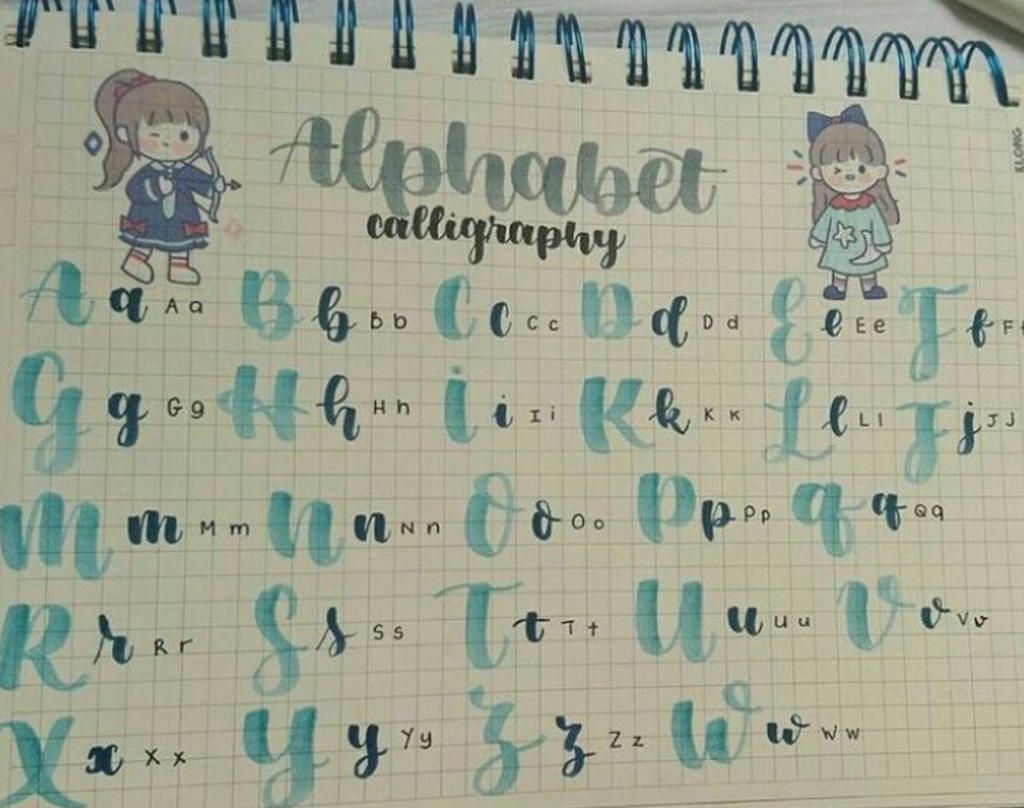 Alphabet
calligraphy
A a A a B b B b C c C c D d D d E e E e F f F f
G g G g H h H h I i I i K k K k L l L l J j J j
M m M m N n N n O o O o P p P p Q q Q q
R r R r S s S s T t T t U u u u V v V v
X x X x Y y Y y Z z Z z W w W w
KLONG